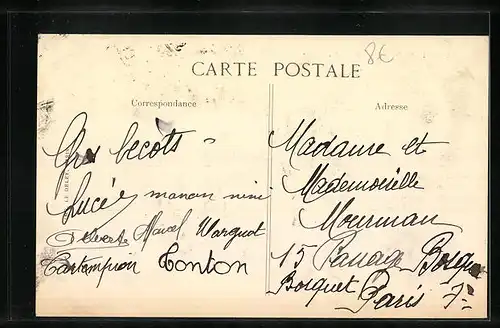 8€
CARTE POSTALE
Correspondance
Adresse
Gros becots
Lucée manon nini
Marcel Warguot
Tartempion Tonton
Madame et
Mademoiselle
Mourman
15 Bosquet
Bosquet Paris 7e